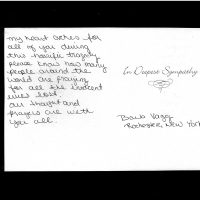 my heart aches for
all of you during
this horrific tragedy
please know how many
people around the
world are praying
for all the innocent
lives lost.
our thought and
prayers are with
you all.
In Deepest Sympathy
Rochester, New York